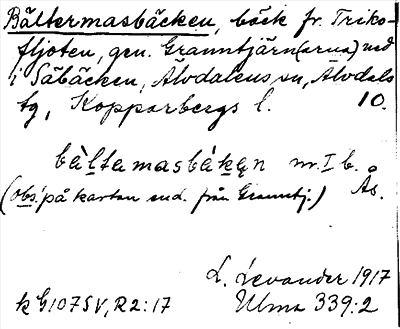 Bältermasbäcken, bäck fr. Triko-
fljoten, gen. Granntjärn(arna) ned
i Säbäcken, Älvdalens sn, Älvdals
tg, Kopparbergs l. 10.
bàl̲tamasbák̲ęn nr. I b.
(obs! på kartan end. från Granntj.) Ås.
L. Levander 1917
k G107SV, R2:17 Ulma 339:2